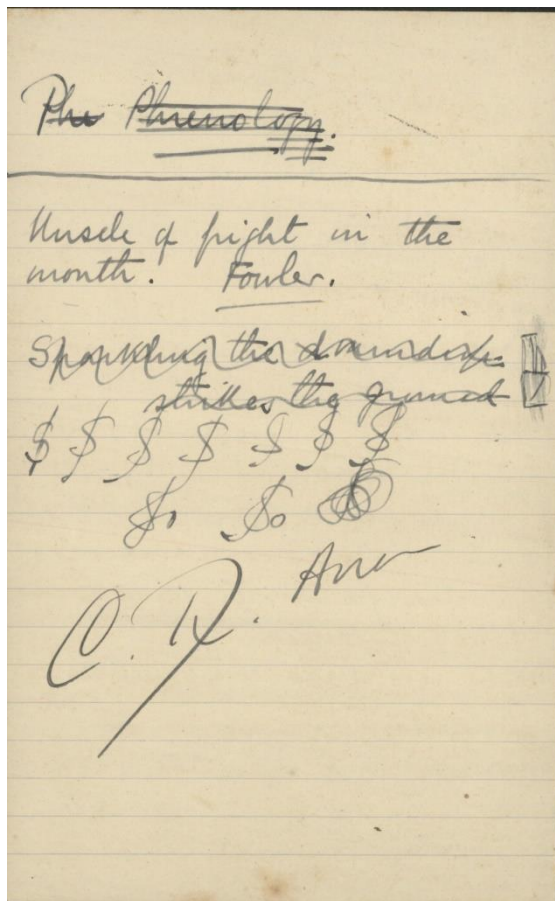 Phre Phrenology.
Muscle of fright in the
month. Fowler.
Sparkling the
strikes the ground
$ $ $ $ $ $ $
$1 $0
C. R. Ann